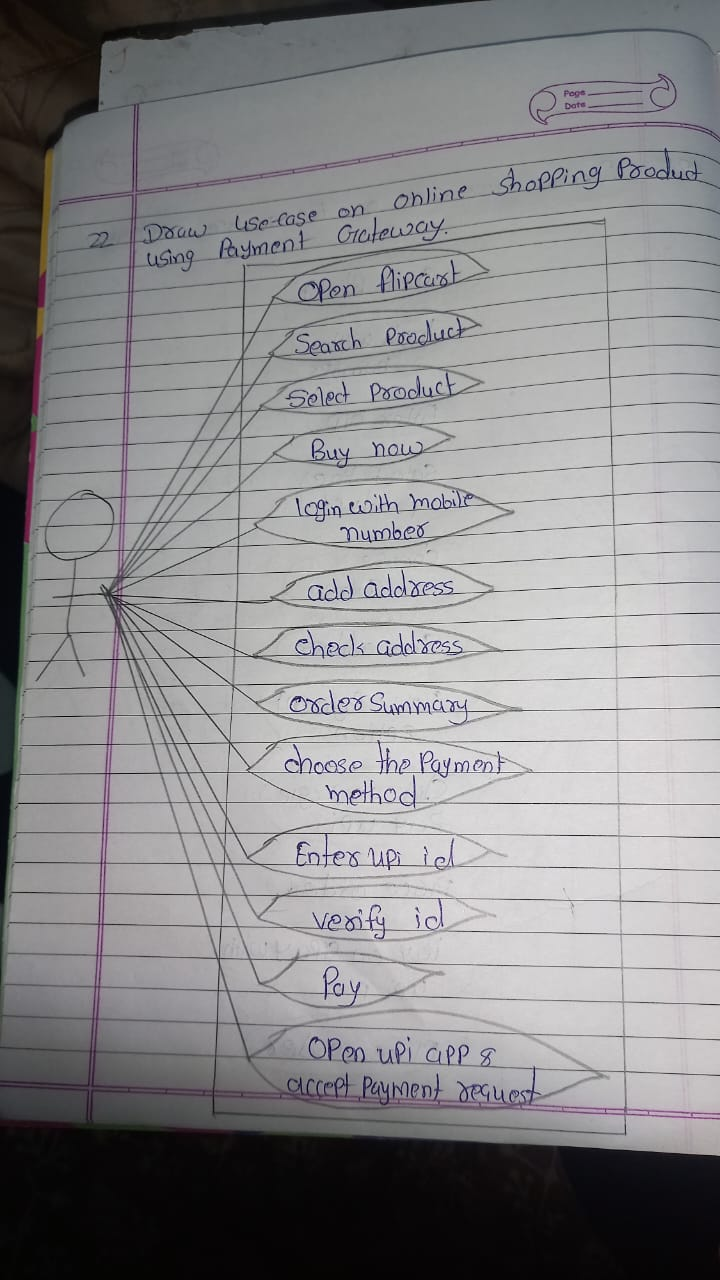 Page
Date
22 Draw use-case on online shopping Product
using Payment Gateway.
Open flipcart
Search Product
Select Product
Buy now
login with mobile
number
add address
check address
order Summary
choose the Payment
method.
Enter upi id
verify id
Pay
Open upi app &
accept payment request